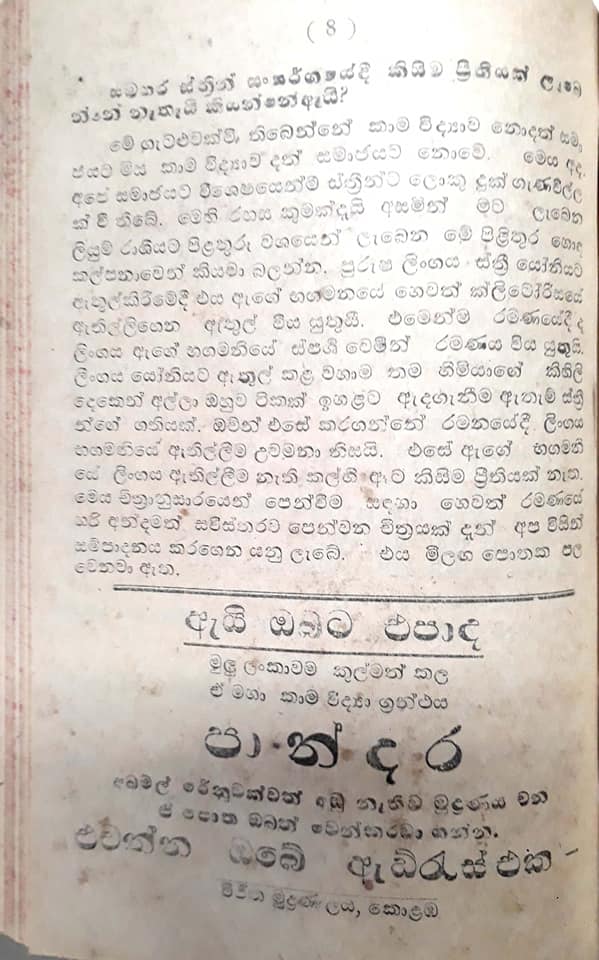 ( 8 )
සමහර ස්ත්‍රීන් සංසර්ගයේදී කිසිම ප්‍රීතියක් ලැබෙ
න්නේ නැතැයි කියන්නේ ඇයි?
මේ ගැටළුවක්ව තිබෙන්නේ කාම විද්‍යාව නොදත් සමා
ජයට මිය කාම විද්‍යාව දත් සමාජයට නොවේ. මෙය අද
අපේ සමාජයට විශෙෂයෙන්ම ස්ත්‍රීන්ට ලොකු දුක් ගැණවිල්ල
ක් වී තිබේ. මෙහි රහස කුමක්දැයි අසමින් මට ලැබෙන
ලියුම් රාශියට පිළිතුරු වශයෙන් ලැබෙන මේ පිළිතුර හොඳ
කල්පනාවෙන් කියවා බලන්න. පුරුෂ ලිංගය ස්ත්‍රී යෝනියට
ඇතුල්කිරීමේදී එය ඇගේ භගමනියේ හෙවත් ක්ලිටෝරිසයේ
ඇතිල්ලිගෙන ඇතුල් විය යුතුයි. එමෙන්ම රමණයේදී ද
ලිංගය ඇගේ භගමනියේ ස්පර්ශ වෙමින් රමණය විය යුතුයි.
ලිංගය යෝනියට ඇතුල් කළ වහාම තම හිමියාගේ කිහිලි
දෙකෙන් අල්ලා ඔහුව ටිකක් ඉහළට ඇදගැනීම ඇතැම් ස්ත්‍රී
න්ගේ ගතියක්. ඔවුන් එසේ කරගන්නේ රමනයේදී ලිංගය
භගමනියේ ඇතිල්ලීම උවමනා නිසයි. එසේ ඇගේ භගමනි
යේ ලිංගය ඇතිල්ලීම නැති කල්හි ඇට කිසිම ප්‍රීතියක් නැත.
මෙය චිත්‍රානුසාරයෙන් පෙන්වීම සඳහා හෙවත් රමණයේ
හරි අන්දමත් සවිස්තරව පෙන්වන චිත්‍රයක් දැන් අප විසින්
සම්පාදනය කරගෙන යනු ලැබේ. එය මීලඟ පොතක පල
වෙනවා ඇත.
ඇයි ඔබට එපාද
මුලු ලංකාවම කුල්මත් කල
ඒ මහා කාම විද්‍යා ග්‍රන්ථය
පාන්දර
අබමල් රේනුවක්වත් අඩු නැතිව මුද්‍රණය වන
ඒ පොත ඔබත් වෙන්කරවා ගන්න.
එවන්න ඔබේ ඇඩ්රැස් එක –
මුද්‍රණාලය, කොළඹ